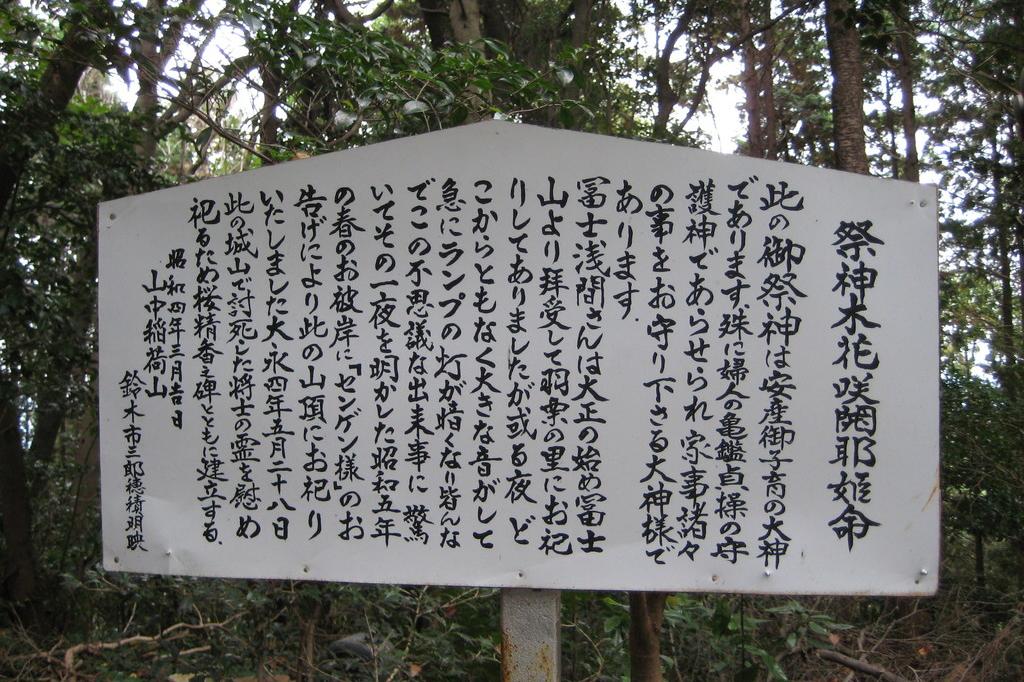 祭神木花咲開耶姫命
此の御祭神は安産御子育の大神
であります､殊に婦人の亀鑑貞操の守
護神であらせられ家事諸々
の事をお守り下さる大神様で
あります.
冨士浅間さんは大正の始め冨士
山より拝受して羽の里にお祀
りしてありましたが或る夜ど
こからともなく大きな音がして
急にランプの灯が暗くなり皆んな
でこの不思議な出来事に驚
いてその一夜を明かした昭和五年
の春のお彼岸に｢センゲン様｣のお
告げにより此の山頂にお祀り
いたしました大永四年五月二十八日
此の城山で討死した将士の霊を慰め
祀るため桜精香之碑とともに建立する､
昭和四年三月吉日
山中稲荷山
鈴木市三郎穂積明映